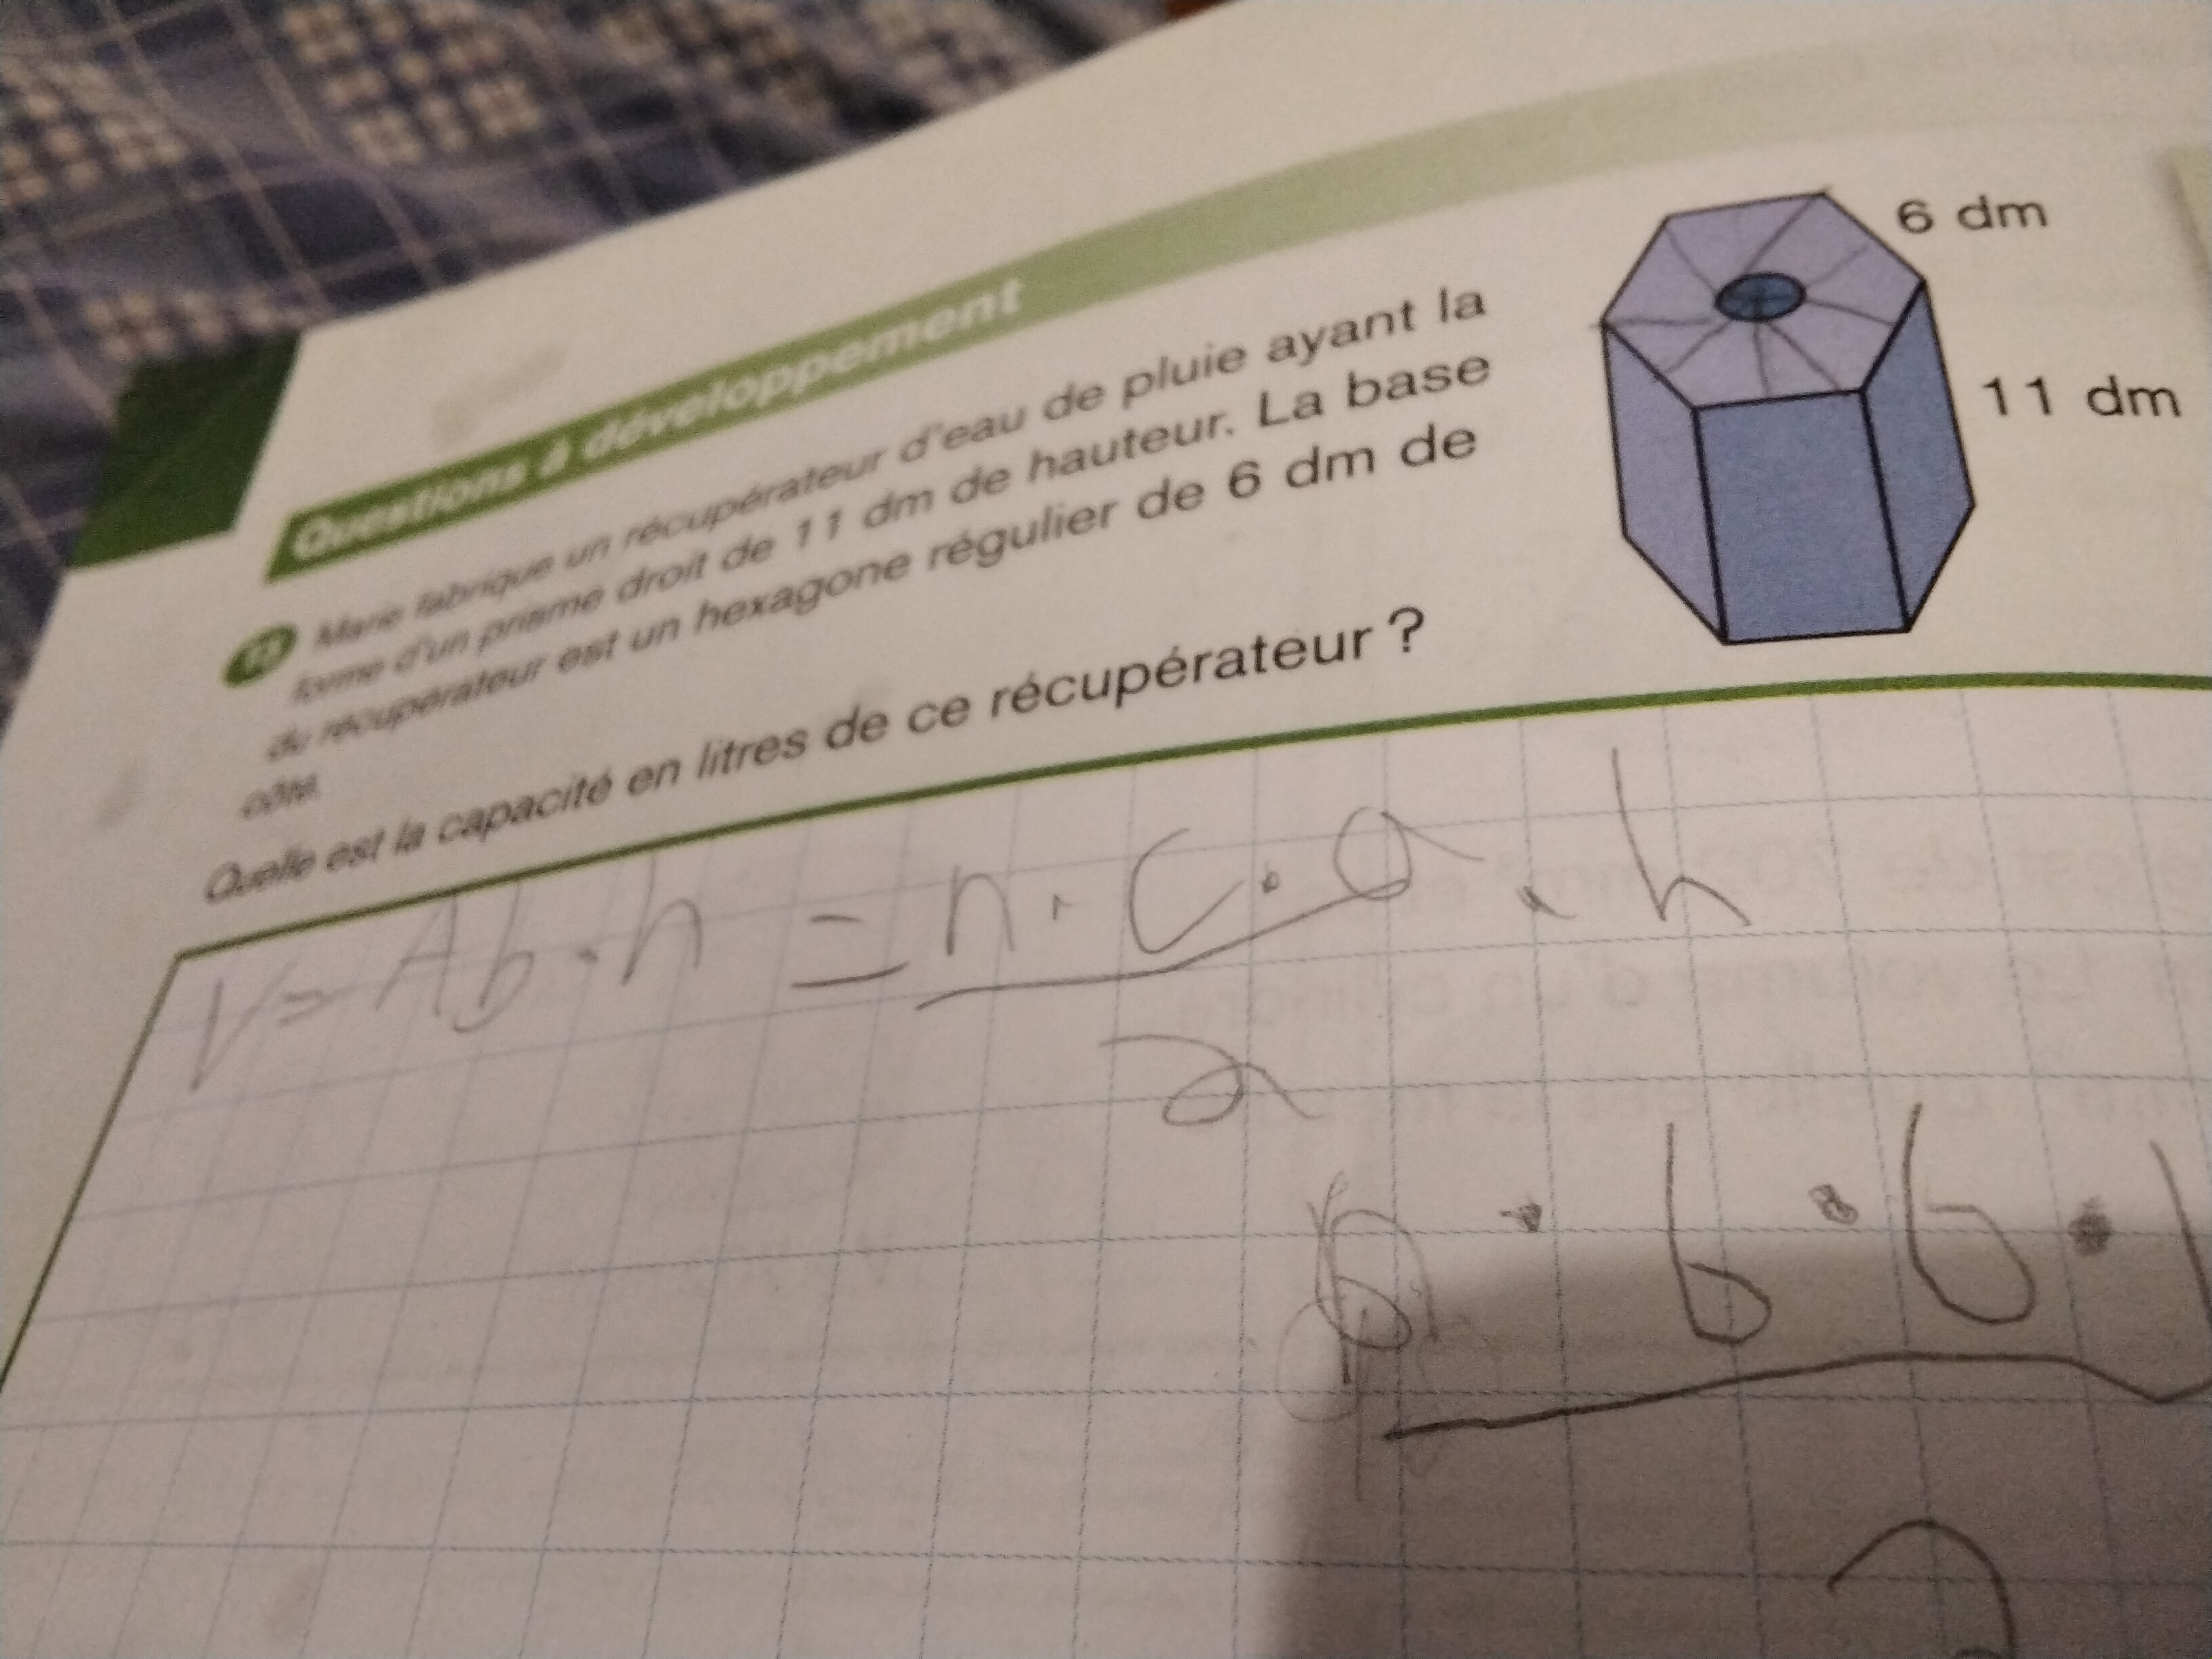 Questions à développement
Marie fabrique un récupérateur d'eau de pluie ayant la
forme d'un prisme droit de 11 dm de hauteur. La base
du récupérateur est un hexagone régulier de 6 dm de
côté.
Quelle est la capacité en litres de ce récupérateur ?
6 dm
11 dm
V = Ab · h = n · c · a · h
2
6 · 6 · 6 · 1
2